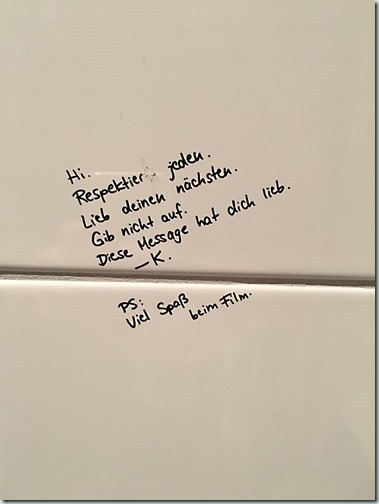 Hi.
Respektier jeden.
Lieb deinen nächsten.
Gib nicht auf.
Diese Message hat dich lieb.
—K.
PS:
Viel Spaß beim Film.